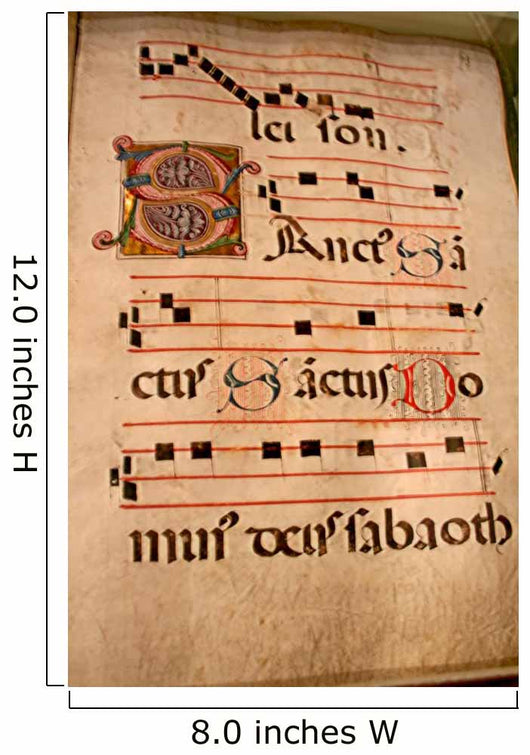 lei son.
Sanctꝰ Sā
ctus Sāctus Do
minꝰ deus sabaoth
12.0 inches H
8.0 inches W